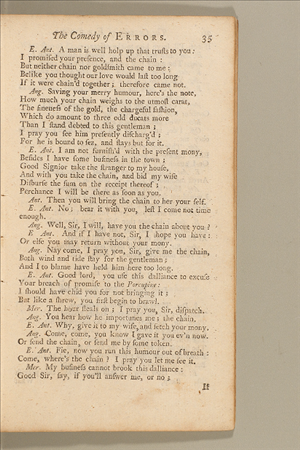 The Comedy of ERRORS. 35
E. Ant. A man is well holp up that trusts to you:
I promised your presence, and the chain:
But neither chain nor goldsmith came to me;
Belike you thought our love would last too long
If it were chain'd together; therefore came not.
Ang. Saving your merry humour, here's the note,
How much your chain weighs to the utmost carat,
The fineness of the gold, the chargeful fashion,
Which do amount to three odd ducats more
Than I stand debted to this gentleman;
I pray you see him presently discharg'd;
For he is bound to sea, and stays but for it.
E. Ant. I am not furnish'd with the present mony,
Besides I have some business in the town;
Good Signior take the stranger to my house,
And with you take the chain, and bid my wife
Disburse the sum on the receipt thereof;
Perchance I will be there as soon as you.
Ant. Then you will bring the chain to her your self.
E. Ant. No; bear it with you, lest I come not time
enough.
Ang. Well, Sir, I will, have you the chain about you?
E Ant. And if I have not, Sir, I hope you have:
Or else you may return without your mony.
Ang. Nay come, I pray you, Sir, give me the chain,
Both wind and tide stay for the gentleman;
And I to blame have held him here too long.
E. Ant. Good lord, you use this dalliance to excuse
Your breach of promise to the Porcupine:
I should have chid you for not bringing it;
But like a shrew, you first begin to brawl.
Mer. The hour steals on; I pray you, Sir, dispatch.
Ang. You hear how he importunes me; the chain.
E. Ant. Why, give it to my wife, and fetch your mony.
Ang. Come, come, you know I gave it you ev'n now.
Or send the chain, or send me by some token.
E. Ant. Fie, now you run this humour out of breath:
Come, where's the chain? I pray you let me see it.
Mer. My business cannot brook this dalliance:
Good Sir, say, if you'll answer me, or no;